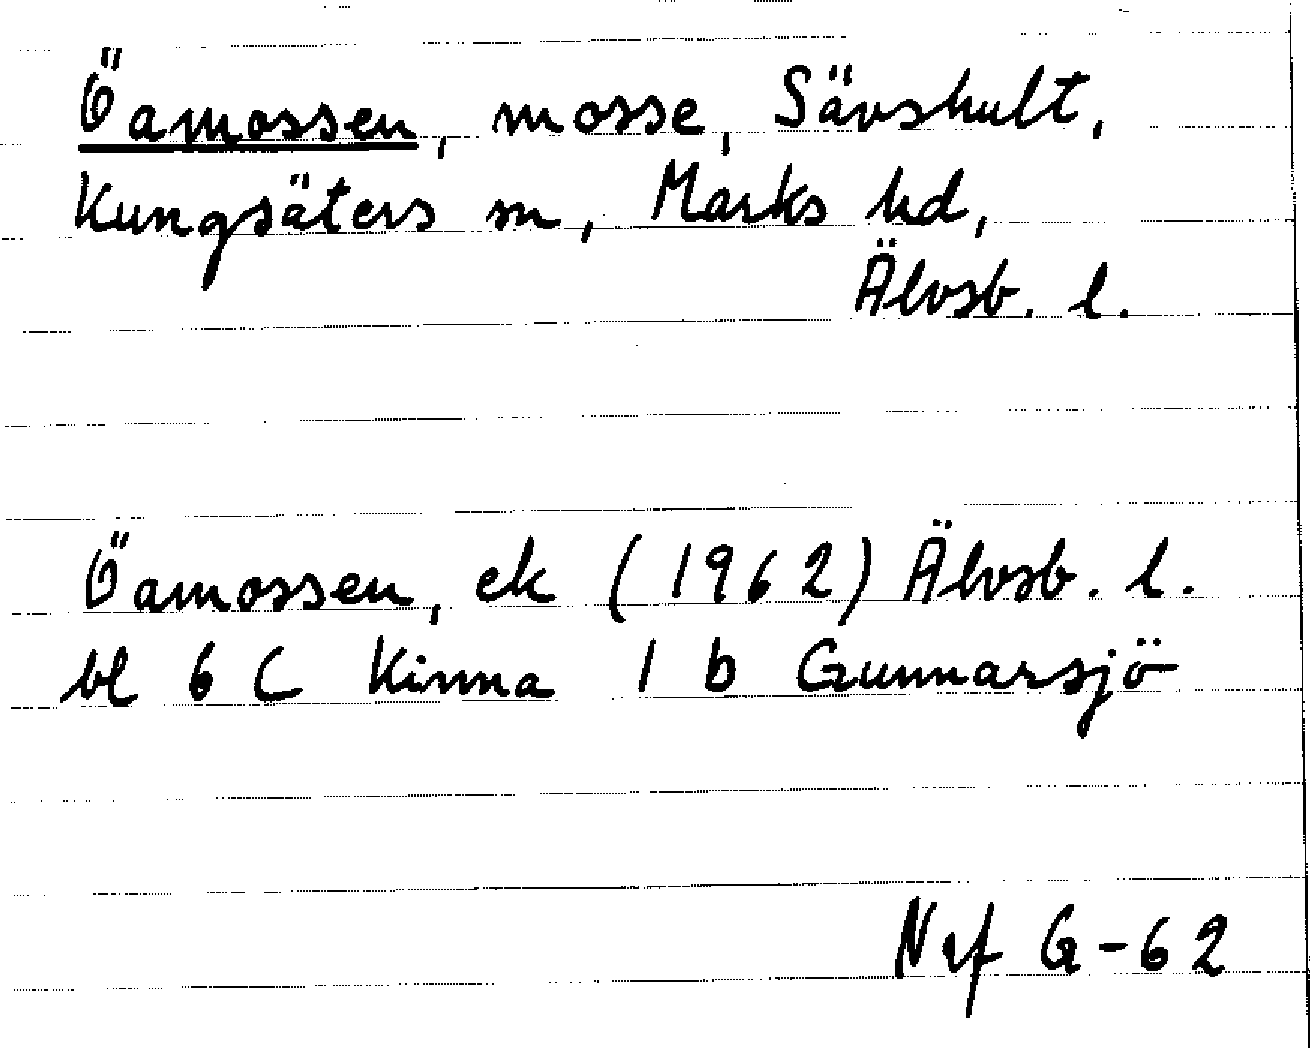 Öamossen, mosse, Sävshult,
Kungsäters sn, Marks hd,
Älvsb. l.
Öamossen, ek (1962) Älvsb. l.
bl 6 C Kinna 1 b Gunnarsjö
Nrf G-62